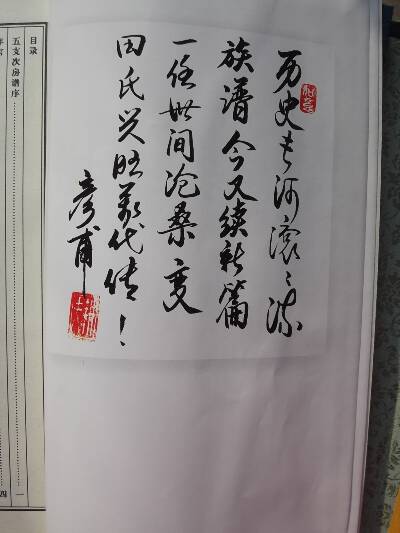 历史长河滚滚流
族谱今又续新篇
一任世间沧桑变
田氏兴旺万代传！
彦甫
目录
五支次房谱序
一
四